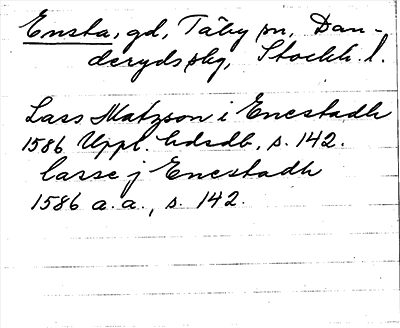 Ensta, gd, Täby sn, Dan-
deryds skg, Stockh. l.
Lass Matzson i Enestadh
1586 Uppl. hdsdb, s. 142.
larse j Enestadh
1586 a.a., s. 142.